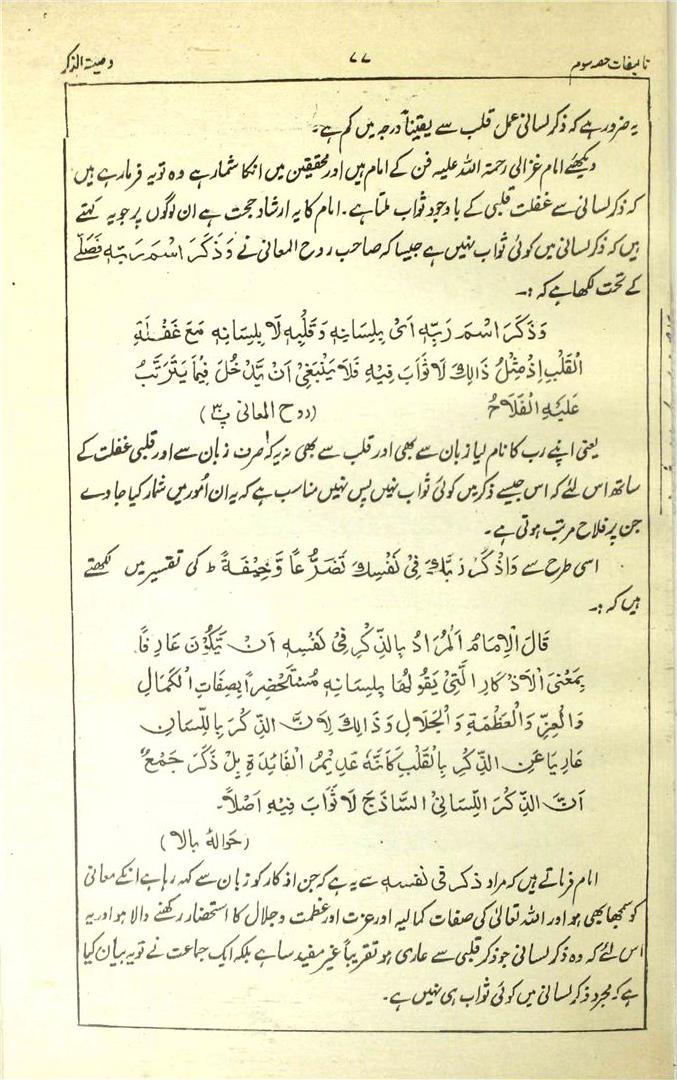 تالیفات حصہ سوم ۷۷ وصیۃ الذکر
یہ ضرور ہے کہ ذکر لسانی عمل قلب سے یقیناً درجہ میں کم ہے۔
دیکھئے امام غزالی رحمۃ اللہ علیہ فن کے امام ہیں اور محققین میں انکا شمار ہے وہ تو یہ فرما رہے ہیں
کہ ذکر لسانی سے غفلت قلبی کے باوجود ثواب ملتا ہے۔ امام کا یہ ارشاد حجت ہے ان لوگوں پر جو یہ کہتے
ہیں کہ ذکر لسانی میں کوئی ثواب نہیں ہے جیسا کہ صاحب روح المعانی نے وَذَکَرَ اسْمَ رَبِّہٖ فَصَلّٰی
کے تحت لکھا ہے کہ :۔
وَذَکَرَ اسْمَ رَبِّہٖ اَیْ بِلِسَانِہٖ وَقَلْبِہٖ لَا بِلِسَانِہٖ مَعَ غَفْلَۃِ
الْقَلْبِ اِذْ مِثْلُ ذَالِکَ لَا ثَوَابَ فِیْہِ فَلَا یَنْبَغِیْ اَنْ یَّدْخُلَ فِیْمَا یَتَرَتَّبُ
عَلَیْہِ الْفَلَاحُ (روح المعانی پ۳۰)
یعنی اپنے رب کا نام لیا زبان سے بھی اور قلب سے بھی نہ یہ کہ صرف زبان سے اور قلبی غفلت کے
ساتھ اس لئے کہ اس جیسے ذکر میں کوئی ثواب نہیں پس نہیں مناسب ہے کہ یہ ان اُمور میں شمار کیا جاوے
جن پر فلاح مرتب ہوتی ہے۔
اسی طرح سے وَاذْکُرْ رَّبَّکَ فِیْ نَفْسِکَ تَضَرُّعاً وَّخِیْفَۃً ط کی تفسیر میں لکھتے
ہیں کہ :۔
قَالَ الْاِمَامُ اَلْمُرَادُ بِالذِّکْرِ فِیْ نَفْسِہٖ اَنْ یَّکُوْنَ عَارِفًا
بِمَعْنَی الْاَذْکَارِ الَّتِیْ یَقُوْلُہَا بِلِسَانِہٖ مُسْتَحْضِراً بِصِفَاتِ الْکَمَالِ
وَالْعِزِّ وَالْعَظْمَۃِ وَالْجَلَالِ وَذَالِکَ لِاَنَّ الذِّکْرَ بِاللِّسَانِ
عَارِیًا عَنِ الذِّکْرِ بِالْقَلْبِ کَاَنَّہٗ عَدِیْمُ الْفَائِدَۃِ بَلْ ذَکَرَ جَمْعٌ
اَنَّ الذِّکْرَ اللِّسَانِیَّ السَّاذَجَ لَا ثَوَابَ فِیْہِ اَصْلاً۔
(حوالہ بالا)
امام فرماتے ہیں کہ مراد ذکر فی نفسہ سے یہ ہے کہ جن اذکار کو زبان سے کہہ رہا ہے انکے معانی
کو سمجھا بھی ہو اور اللہ تعالیٰ کی صفات کمالیہ اور عزت اور عظمت و جلال کا استحضار رکھنے والا ہو اور یہ
اس لئے کہ وہ ذکر لسانی جو ذکر قلبی سے عاری ہو تقریباً غیر مفید سا ہے بلکہ ایک جماعت نے تو یہ بیان کیا
ہے کہ مجرد ذکر لسانی میں کوئی ثواب ہی نہیں ہے۔